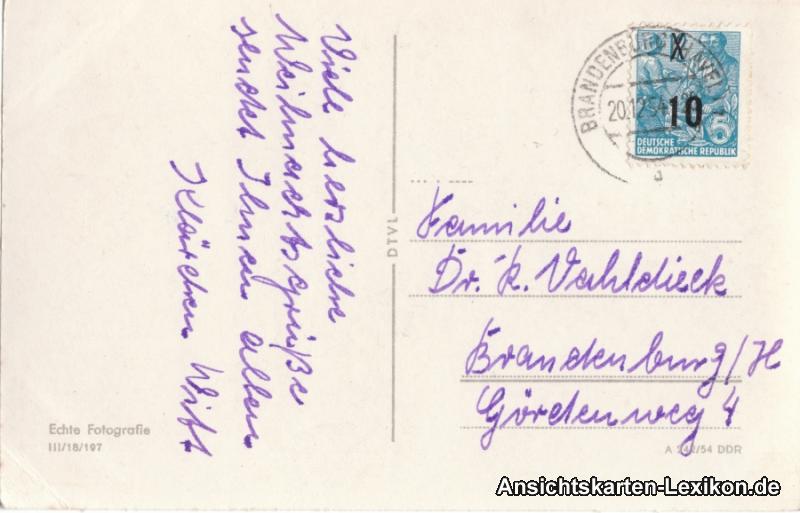 Viele herzliche
Weihnachtsgrüße
sendet Ihnen allen
Klärchen Witt
Echte Fotografie
III/18/197
DTVL
BRANDENBURG (HAVEL)
20.12.54
X
10
5
DEUTSCHE
DEMOKRATISCHE REPUBLIK
Familie
Dr. K. Vahldieck
Brandenburg/H
Gördenweg 4
A 242/54 DDR
Ansichtskarten-Lexikon.de